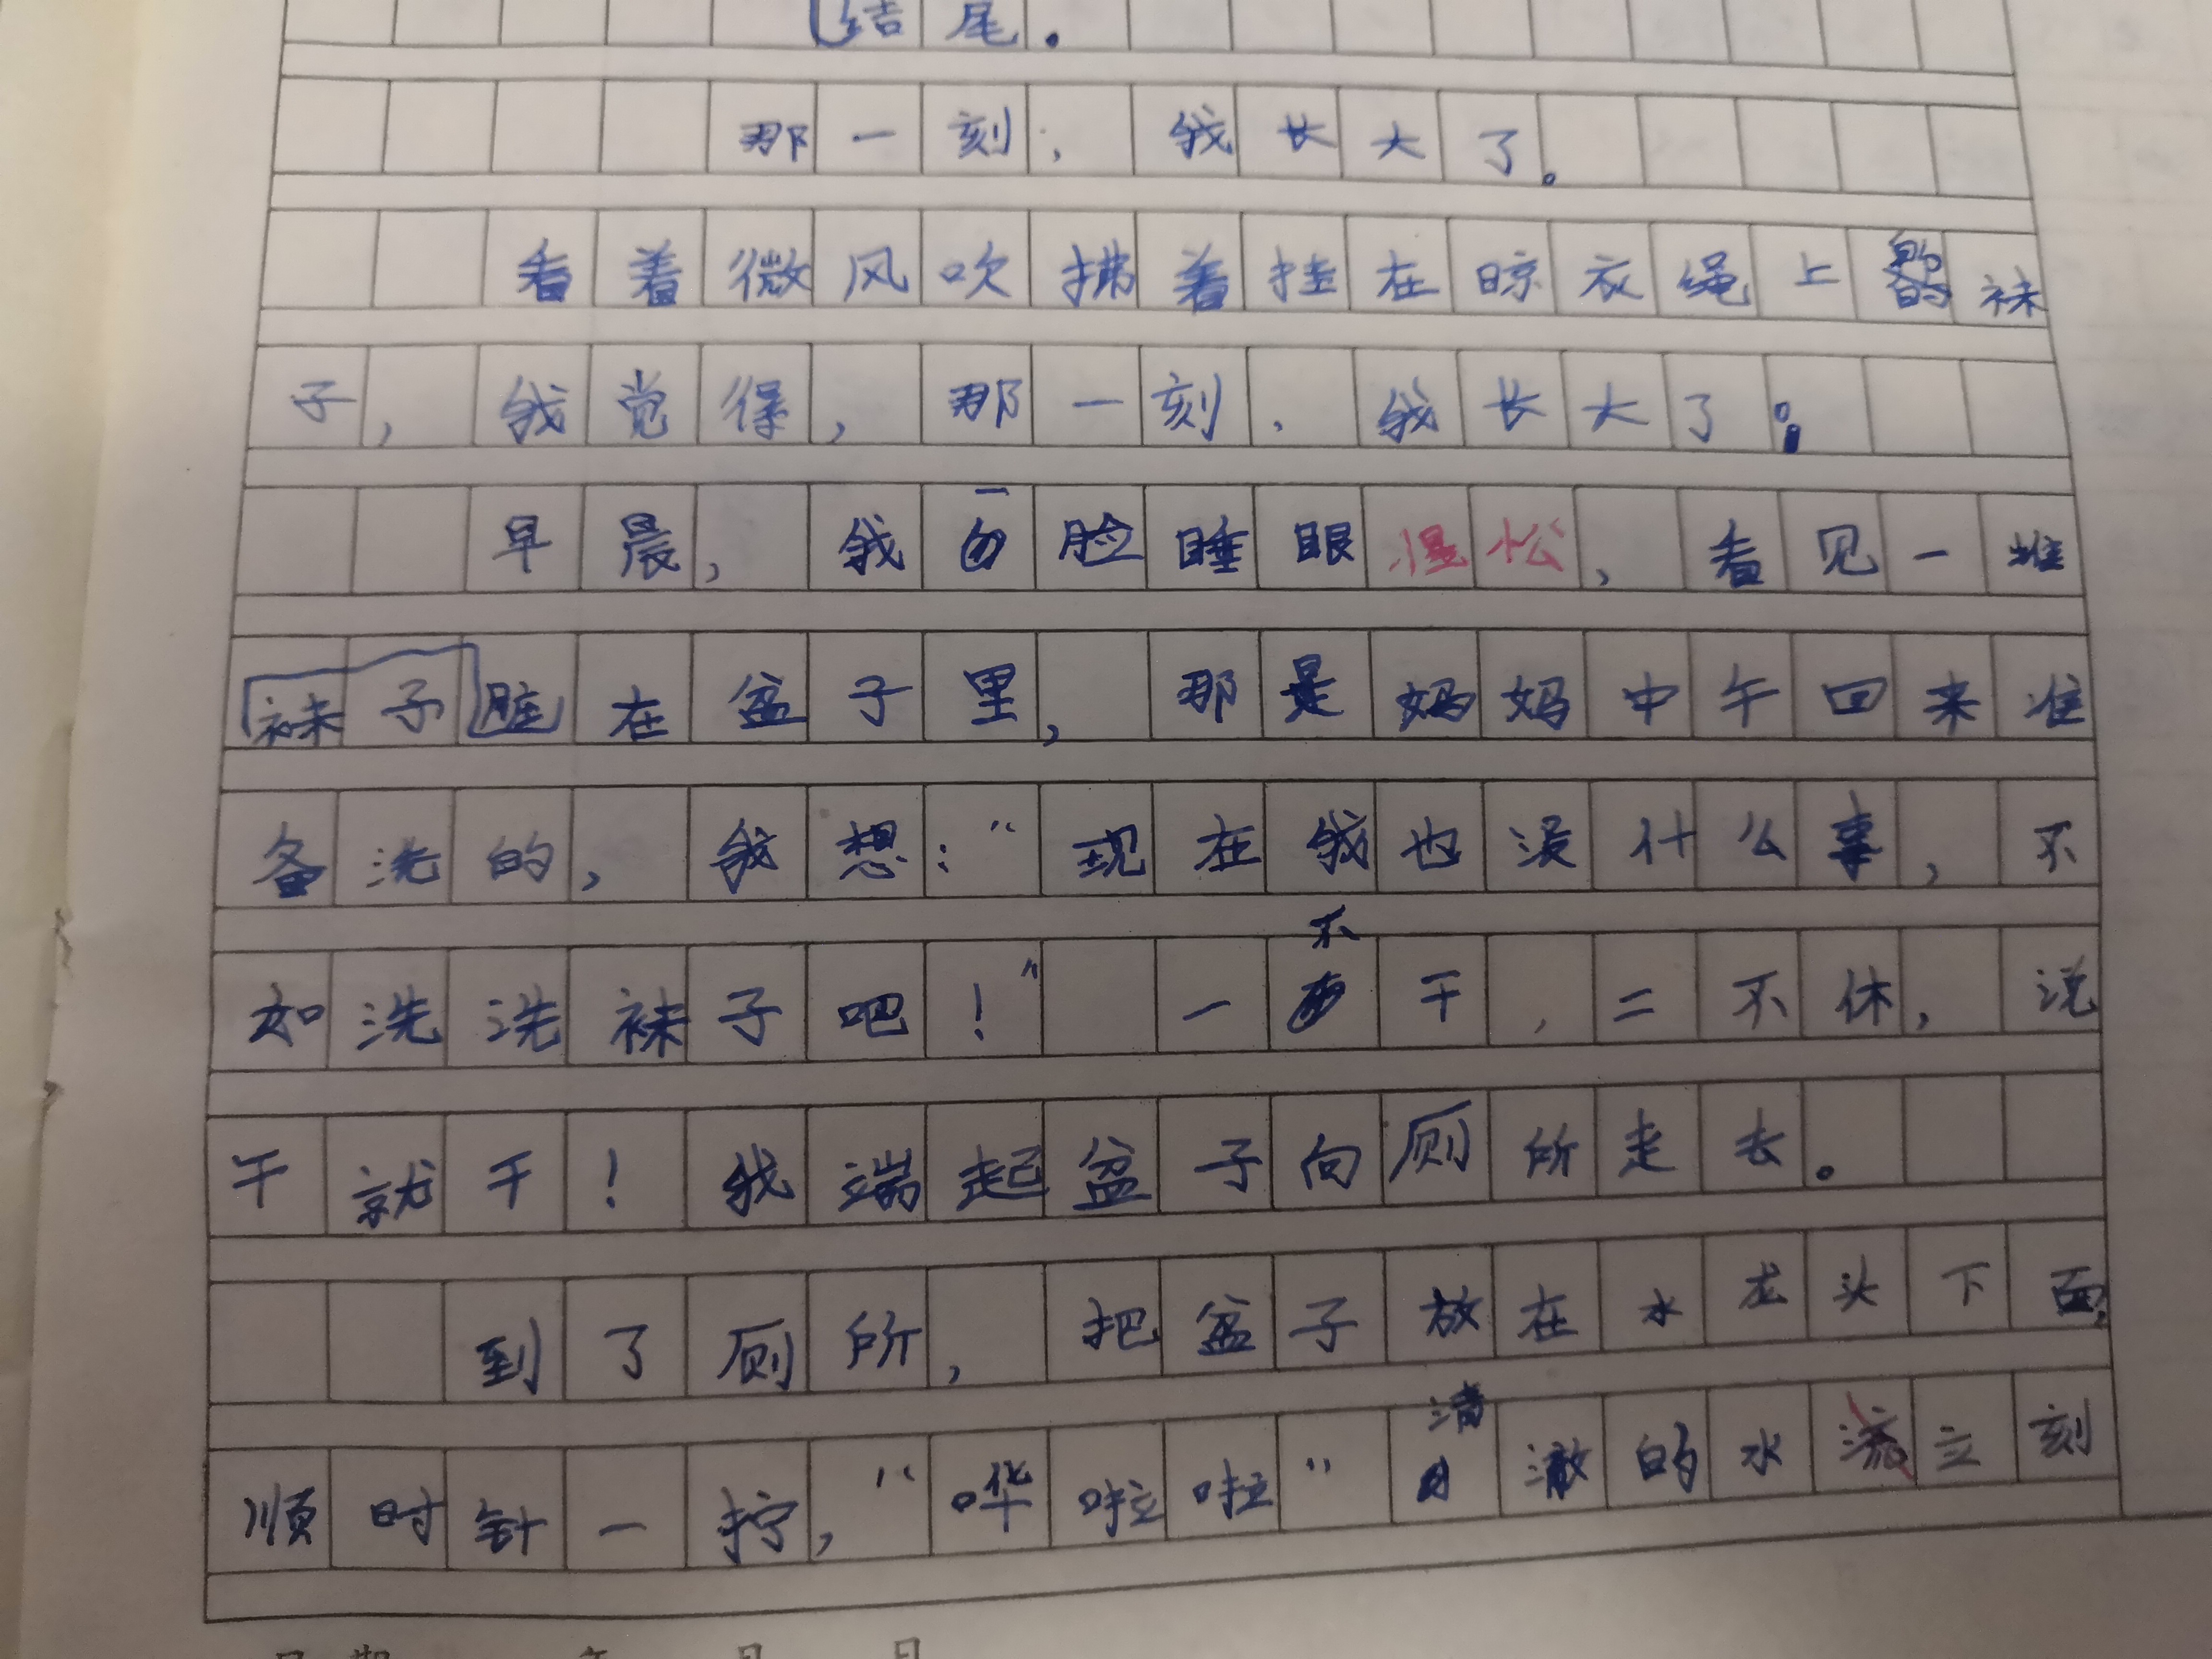 结尾。
那一刻，我长大了。
看着微风吹拂着挂在晾衣绳上的袜
子，我觉得，那一刻，我长大了。
早晨，我一脸睡眼惺松，看见一堆
袜子脏在盆子里，那是妈妈中午回来准
备洗的，我想：“现在我也没什么事，不
如洗洗袜子吧！”一不干，二不休，说
干就干！我端起盆子向厕所走去。
到了厕所，把盆子放在水龙头下面，
顺时针一拧，“哗啦啦”清澈的水流立刻